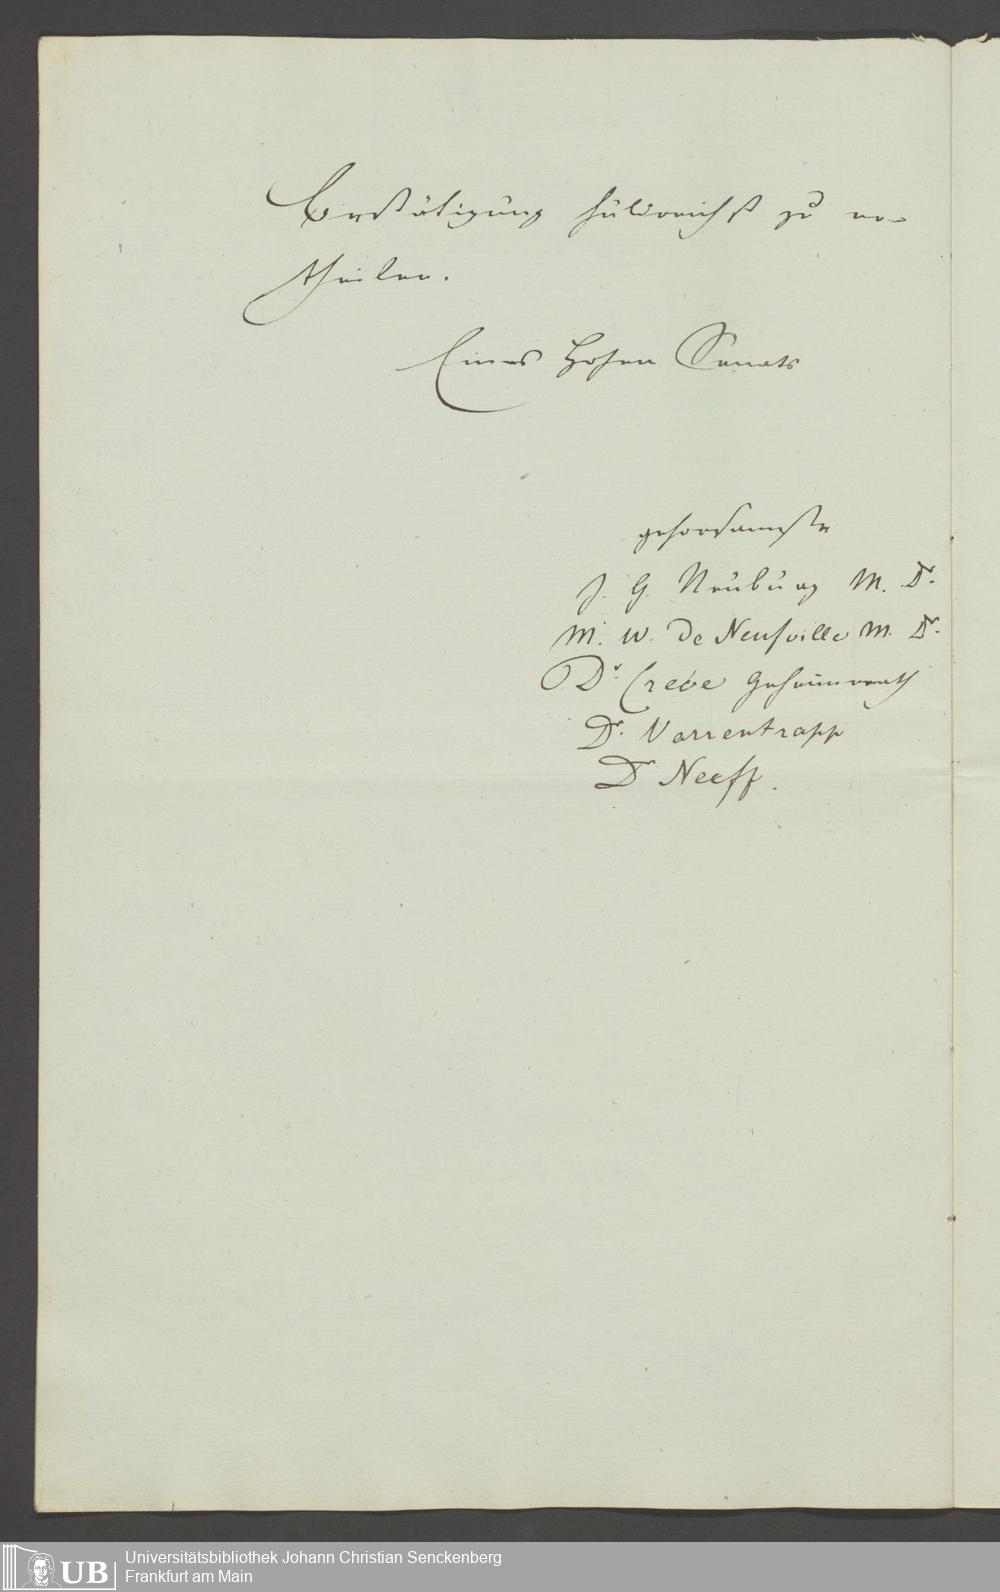 Bestätigung huldreichst zu er-
theilen.
Eines Hohen Senats
gehorsamste
J. G. Neuburg M. Dr.
M. W. De Neufville M. Dr.
Dr. Creve Geheimerath
Dr. Varrentrapp
Dr Neeff.
UB
Universitätsbibliothek Johann Christian Senckenberg
Frankfurt am Main